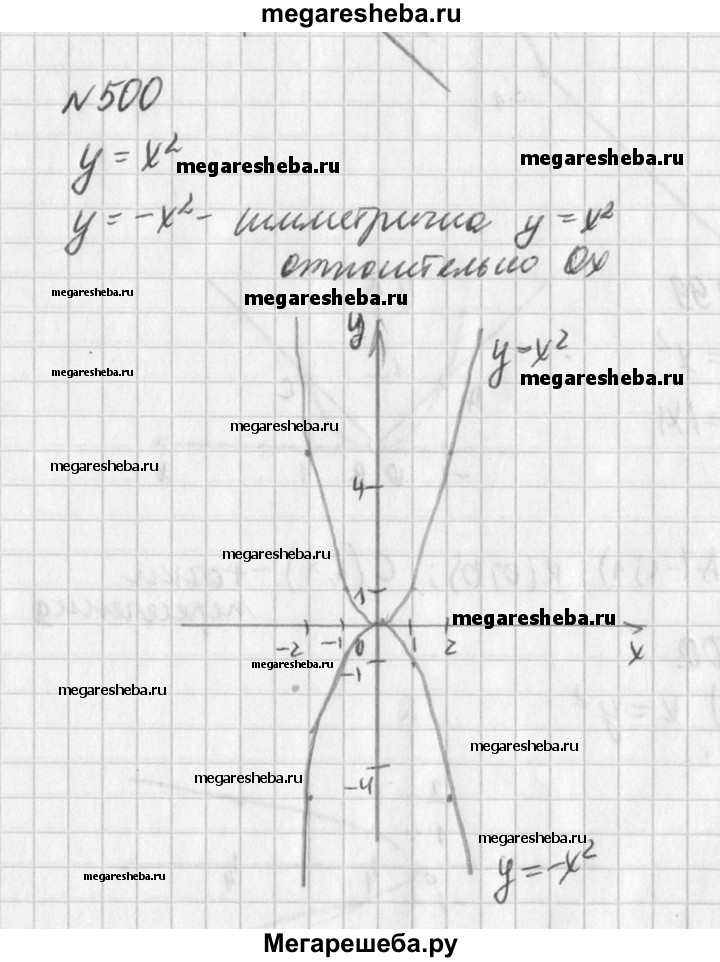 megaresheba.ru
№500
y = x²
megaresheba.ru
megaresheba.ru
y = -x² - симметрична y = x²
относительно Ox
megaresheba.ru
megaresheba.ru
y
y = x²
megaresheba.ru
megaresheba.ru
megaresheba.ru
megaresheba.ru
4
megaresheba.ru
1
megaresheba.ru
-2 -1 0 1 2 x
megaresheba.ru
-1
megaresheba.ru
megaresheba.ru
megaresheba.ru
-4
megaresheba.ru
y = -x²
megaresheba.ru
Мегарешеба.ру